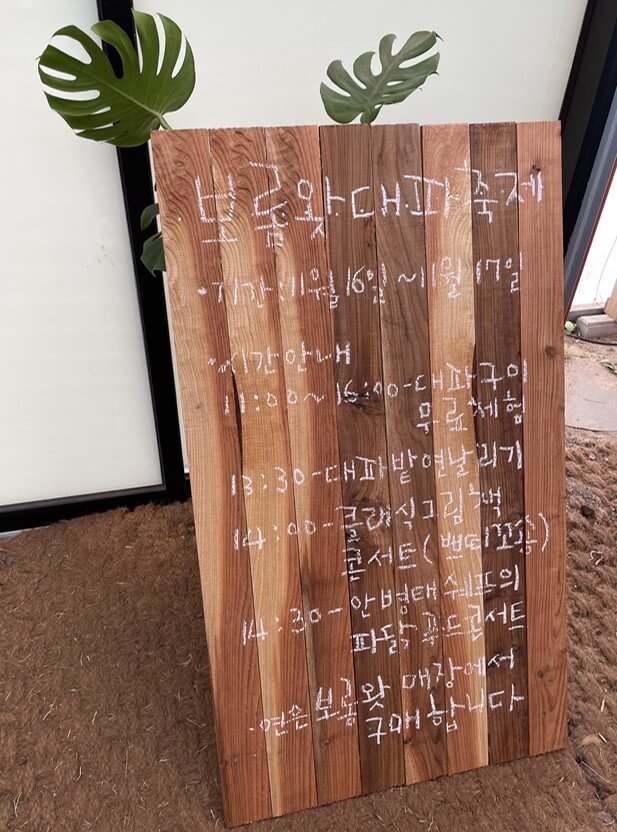 보롬왓 대파축제
·기간:11월16일~11월17일
·시간안내
11:00~16:00-대파구이
무료체험
13:30-대파밭연날리기
14:00-클래식그림책
콘서트(쁘띠꼬숑)
14:30-안병태쉐프의
파닭푸드콘서트
·연은 보롬왓 매장에서
구매합니다